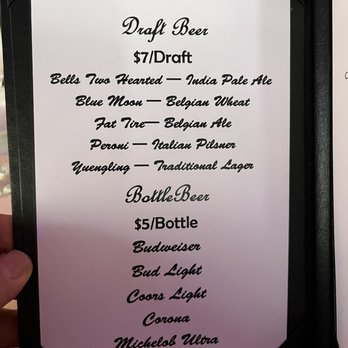 Draft Beer
$7/Draft
Bells Two Hearted — India Pale Ale
Blue Moon — Belgian Wheat
Fat Tire — Belgian Ale
Peroni — Italian Pilsner
Yuengling — Traditional Lager
BottleBeer
$5/Bottle
Budweiser
Bud Light
Coors Light
Corona
Michelob Ultra